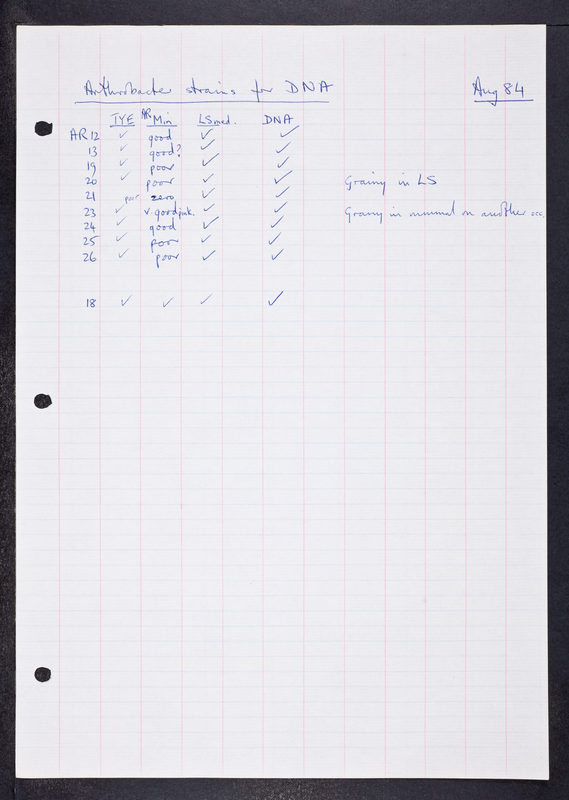 Arthrobacter strains for DNA Aug 84
TYE AR Min LS med. DNA
AR 12 ✓ good ✓ ✓
13 ✓ good? ✓ ✓
19 ✓ poor ✓ ✓
20 ✓ poor ✓ ✓ Grainy in LS
21 poor zero ✓ ✓
23 ✓ v. good pink. ✓ ✓ Grainy in minimal on another occ.
24 ✓ good ✓ ✓
25 ✓ poor ✓ ✓
26 ✓ poor ✓ ✓
18 ✓ ✓ ✓ ✓